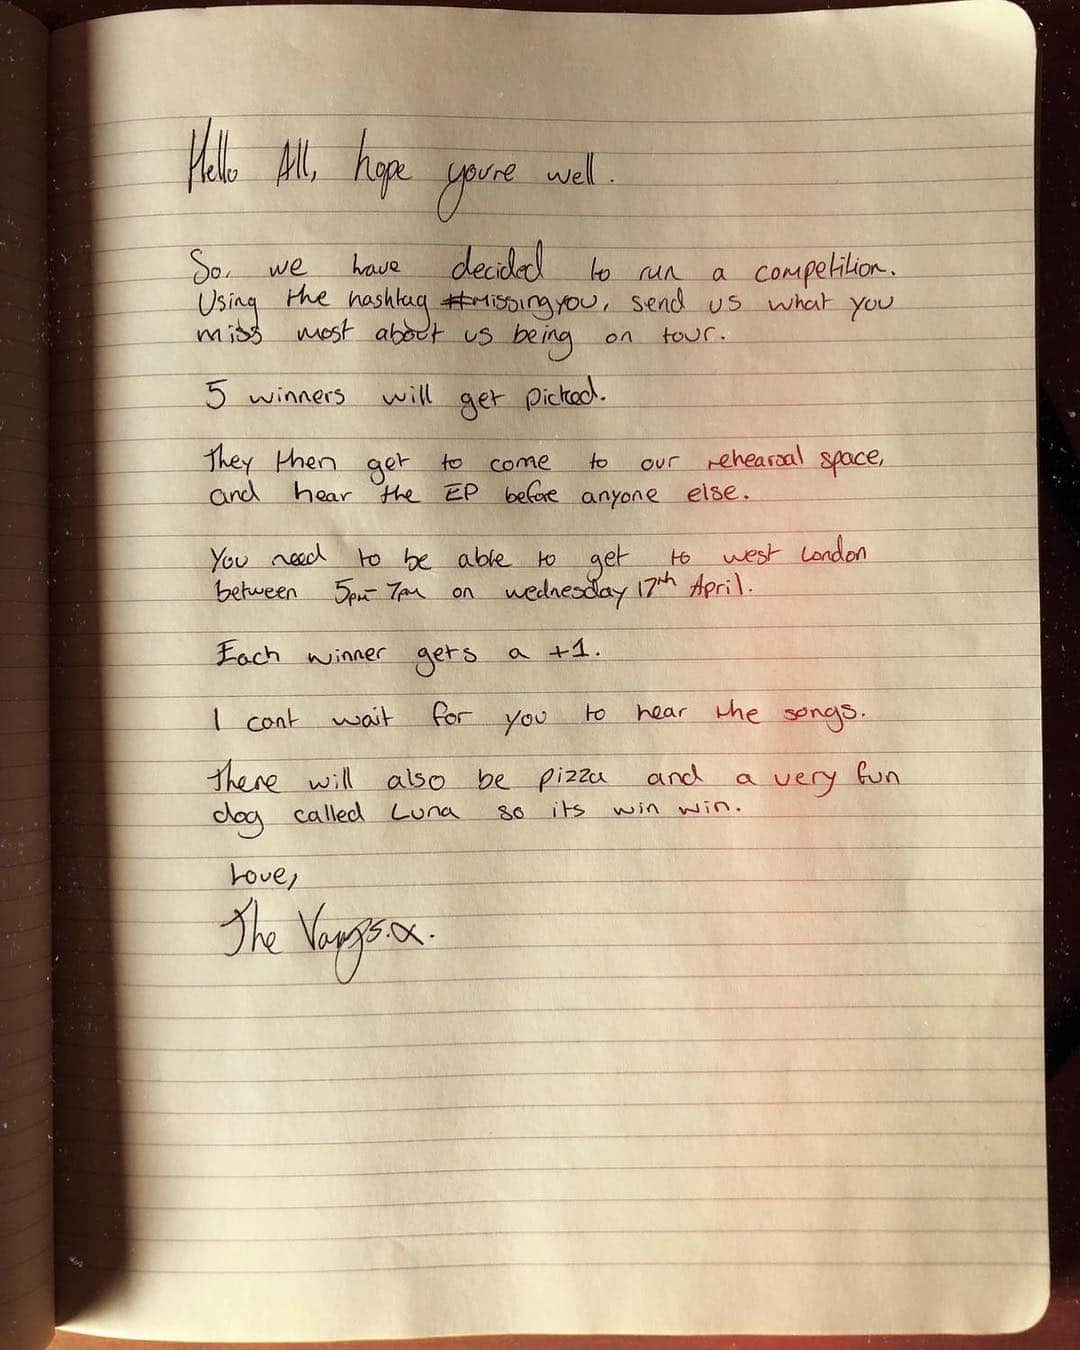 Hello All, hope youre well.
So, we have decided to run a competition.
Using the hashtag #missingyou, send us what you
miss most about us being on tour.
5 winners will get picked.
They then get to come to our rehearsal space,
and hear the EP before anyone else.
You need to be able to get to west London
between 5pm-7pm on wednesday 17th April.
Each winner gets a +1.
I cant wait for you to hear the songs.
There will also be pizza and a very fun
dog called Luna so its win win.
Love,
The Vamps.x.